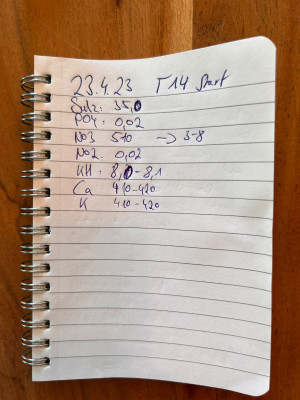 23.4.23 T14 Start
Salz: 35,0
PO4: 0,02
NO3 510 -> 3-8
NO2. 0,02
KH: 8,0-8,1
Ca 410-420
K 410-420